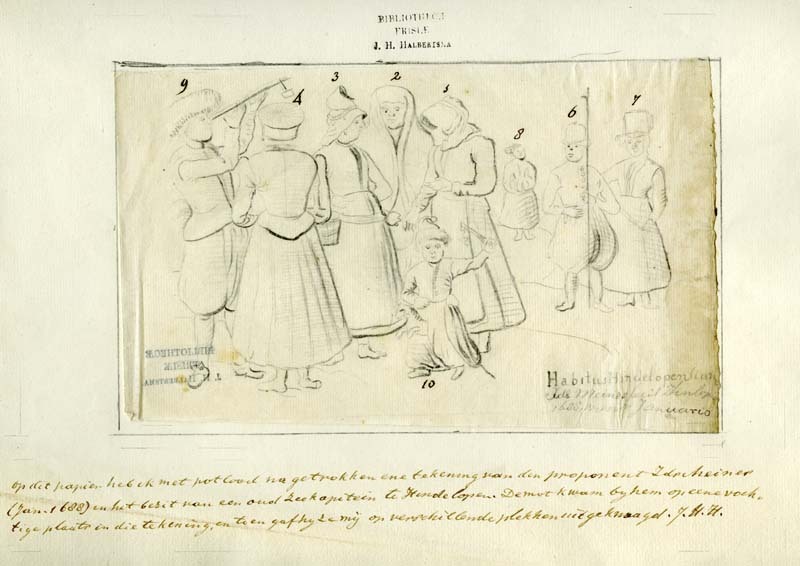 BIBLIOTHECÆ
FRISIÆ
J. H. HALBERTSMA
9
4
3
2
1
8
6
7
10
BIBLIOTHECÆ
FRISIÆ
J. H. HALBERTSMA
Habitus Hindelopensium
Januario
Op dit papier heb ik met potlood na getrokken ene tekening van den proponent
(Jan. 1688) en het bezit van een oud Zeekapitein te Hindelopen. De mot kwam by hem op eene voch-
tige plaats in die tekening, en toen gaf hy ze mij op verschillende plekken uitgeknaagd. J. H. H.